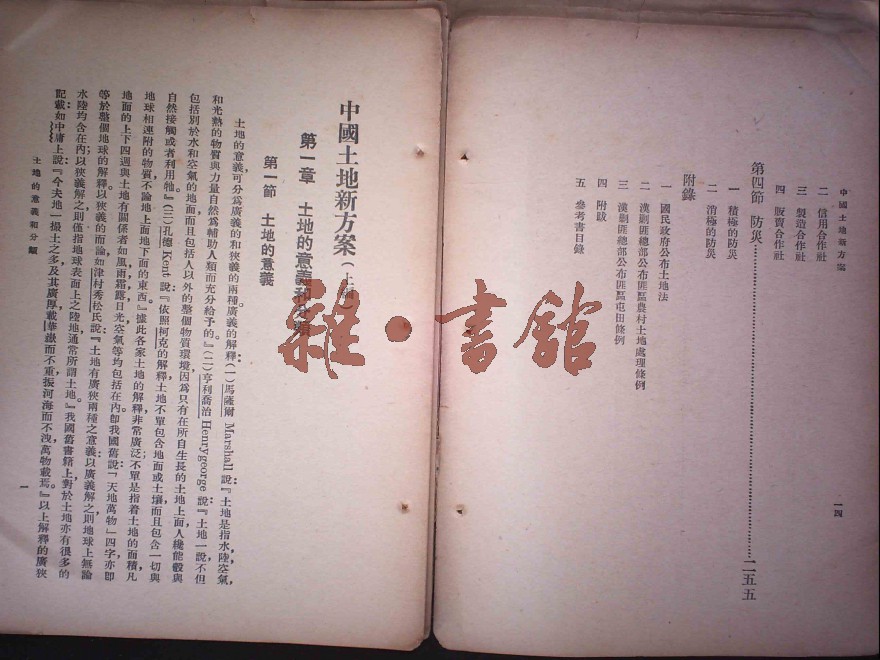 中國土地新方案
二 信用合作社
三 製造合作社
四 販賣合作社
第四節 防災……二五五
一 積極的防災
二 消極的防災
附錄
一 國民政府公布土地法
二 漢剿匪總部公布匪區農村土地處理條例
三 漢剿匪總部公布匪區屯田條例
四 附跋
五 參考書目錄
一四
中國土地新方案（上編）
第一章 土地的意義和分類
第一節 土地的意義
土地的意義，可分爲廣義的和狹義的兩種。廣義的解釋：（一）馬薩爾 Marshall 說：『土地是指水陸空氣，
和光熱的物質與力量，自然爲輔助人類而充分給予的。』（二）亨利喬治 Henrygeorge 說：『土地一說，不但
包括別於水和空氣的地面，而且包括人以外的整個物質環境，因爲只有在所自生長的土地上面，人纔能彀與
自然接觸或者利用牠。』（三）孔德 Kent 說：『依照柯克的解釋，土地不單包含地面或土壤，而且包含一切與
地球相連附的物質，不論地上面地下面的東西。』據此各家土地的解釋，非常廣泛；不單是指着土地的面積，凡
地面的上下四週，與土地有關係者，如風雨霜露日光空氣等，均包括在內。卽我國舊說「天地萬物」四字，亦卽
等於整個地球的解釋。以狹義的而論，如津村秀松氏說：『土地有廣狹兩種之意義，以廣義解之，則地球上無論
水陸均含在內；以狹義解之，則僅指地球表面上之陸地，通常所謂土地。』我國舊書籍上，對於土地，亦有很多的
記載，如中庸上說：『今夫地一撮土之多，及其廣厚，載華嶽而不重，振河海而不洩，萬物載焉。』以上解釋的廣狹
土地的意義和分類
一
雜·書館